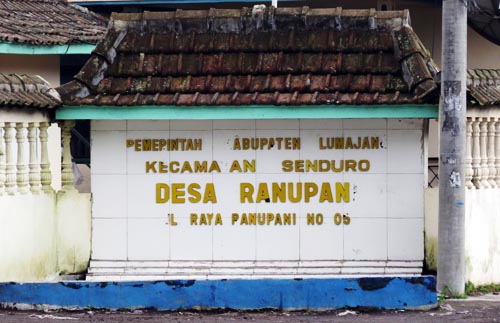 PEMEPINTAH ABUPTEN LUMAJAN
KECAMA AN SENDURO
DESA RANUPAN
L RAYA PANUPANI NO 05